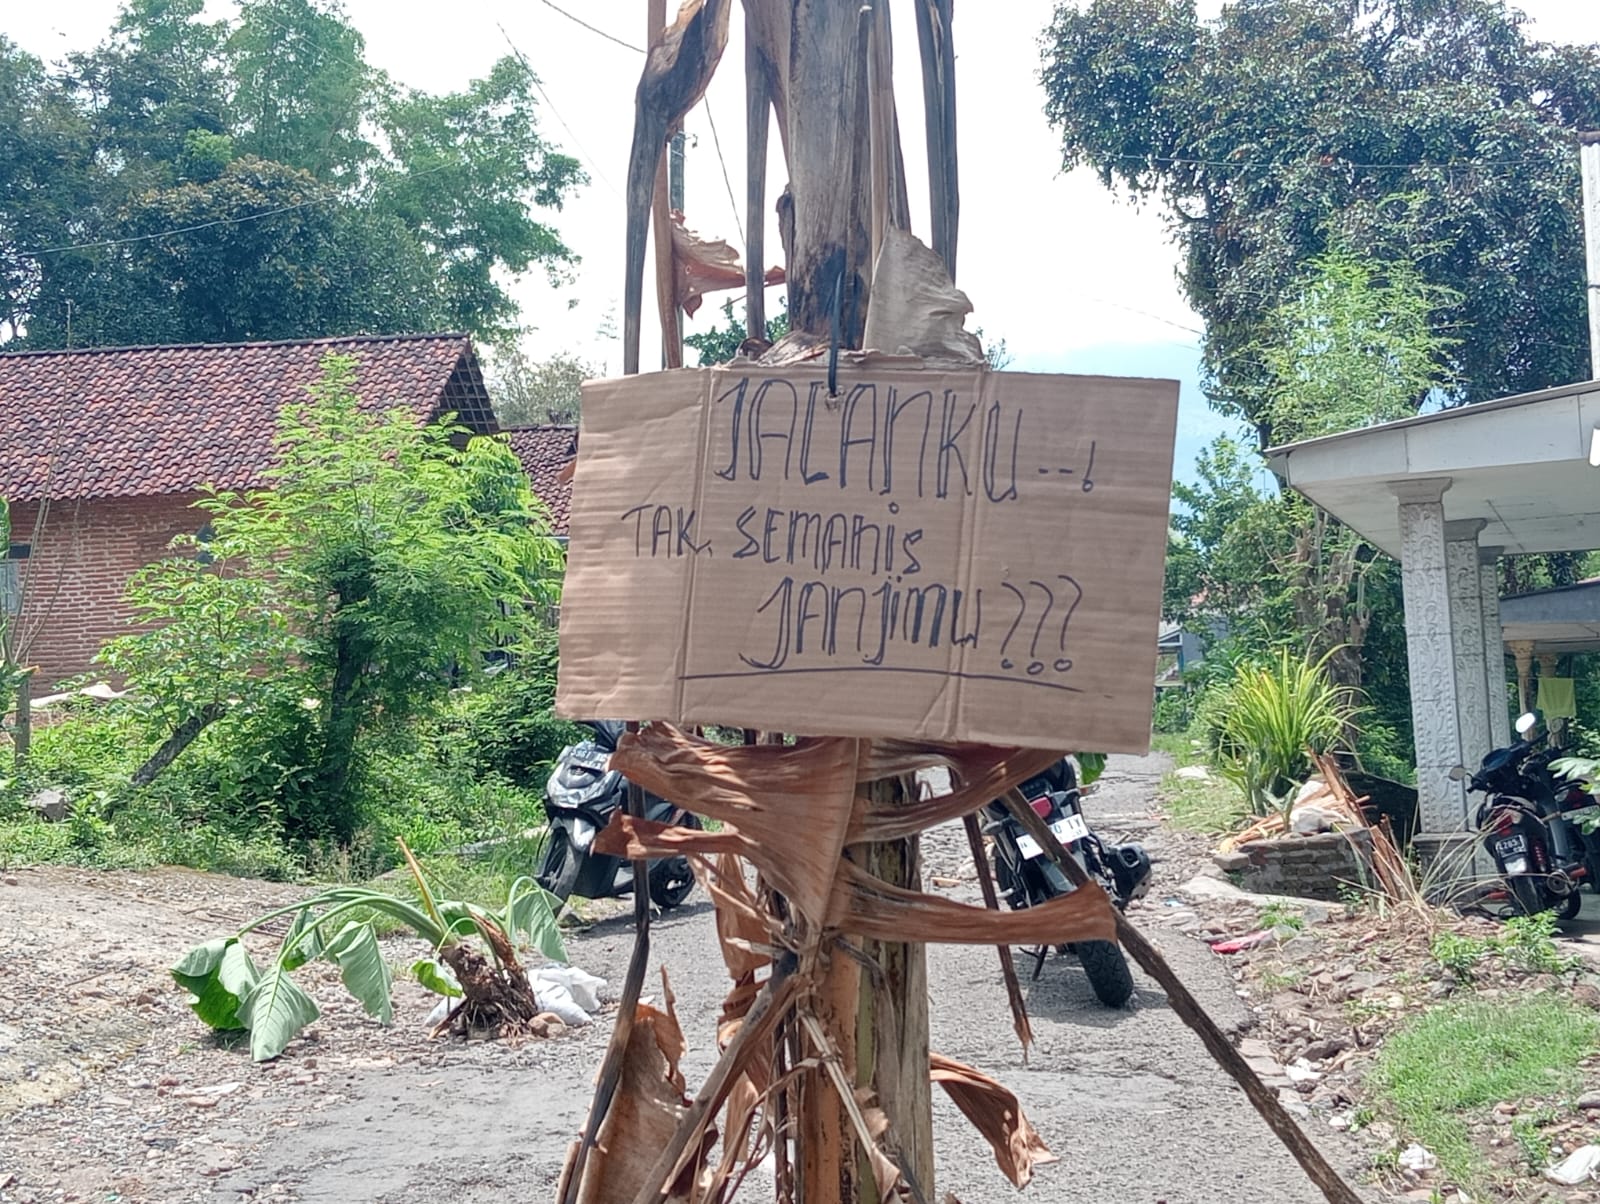 JALANKU--!
TAK. SEMANIS
JANJIMU???